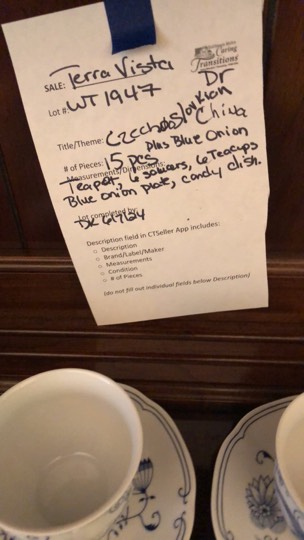 Caring
Transitions
SALE: Terra Vista Dr
Lot #: WT 1947
Title/Theme: Czechoslovkian China
plus Blue Onion
# of Pieces: 15 pcs
Measurements/Dimensions:
Teapot, 6 saucers, 6 Teacups
Blue onion plate, candy dish.
Lot completed by:
6/7/24
Description field in CTSeller App includes:
○ Description
○ Brand/Label/Maker
○ Measurements
○ Condition
○ # of Pieces
(do not fill out individual fields below Description)